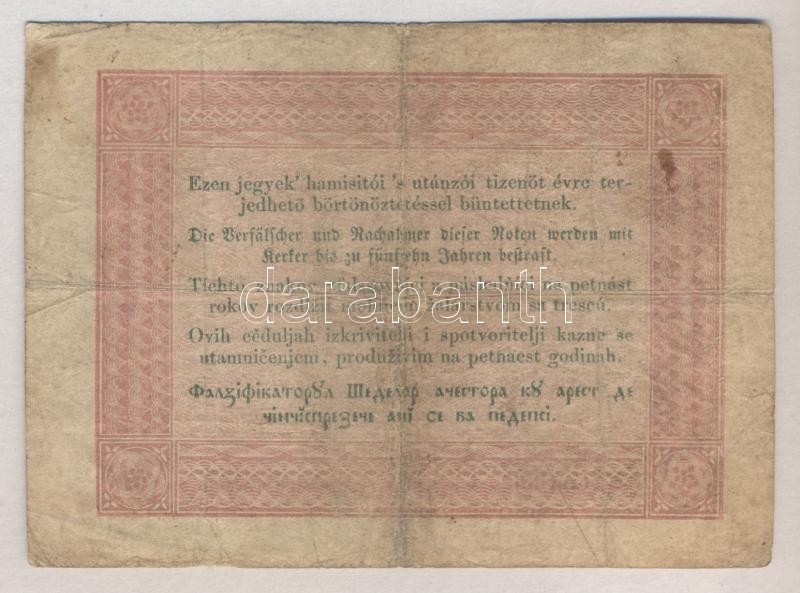 Ezen jegyek' hamisitói 's utánzói tizenöt évre ter-
jedhető börtönöztetéssel büntettetnek.
Die Verfälscher und Nachahmer dieser Noten werden mit
Kerker bis zu fünfzehn Jahren bestraft.
Tíchto na petnást
rokov su trescú.
darabanth
Ovih cěduljah izkrivitelji i spotvoritelji kazne se
utamničenjem, produživim na petnaest godinah.
Фалзіфікаторꙋл Шеделор ачестора кꙋ арест де
чінчіспрезече ані се ва педепсі.